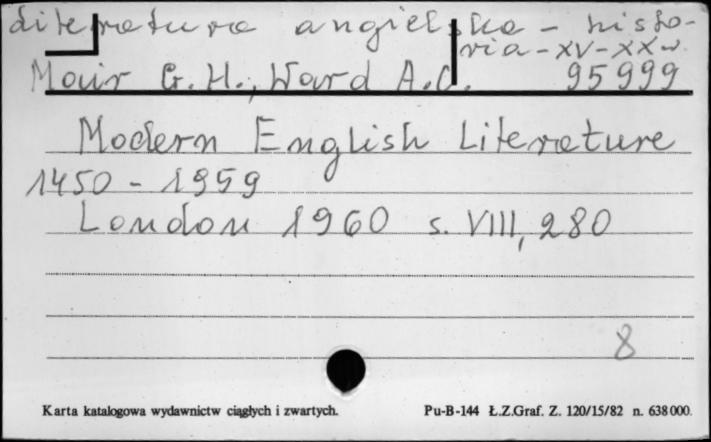 Literatura angielska - histo-
ria - XV-XX w.
Mair G. H., Ward A.C. 95999
Modern English Literature
1450 - 1959
London 1960 s. VIII, 280
8
Karta katalogowa wydawnictw ciągłych i zwartych. Pu-B-144 Ł.Z.Graf. Z. 120/15/82 n. 638000.